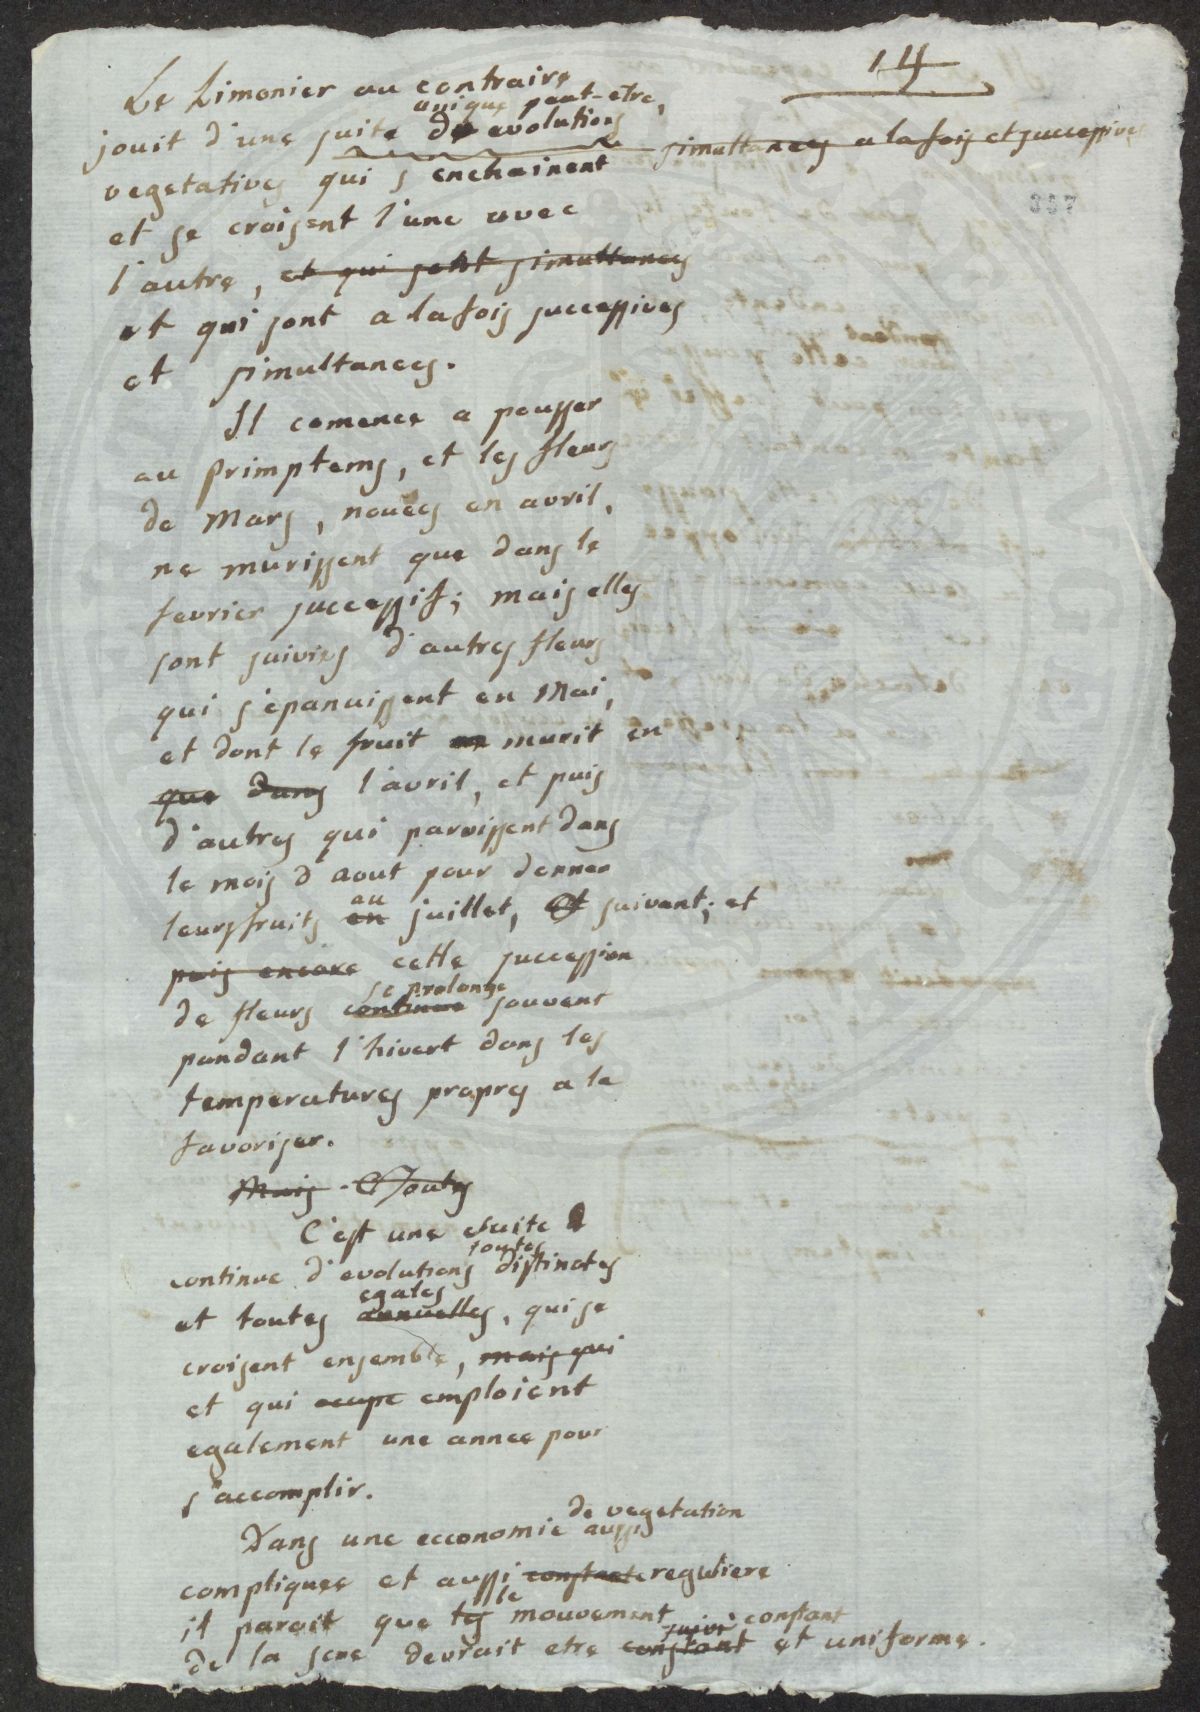 14
337
Le Limonier au contraire
unique peut-etre,
jouit d'une suite de evolutions
simultanees a la fois et successives
vegetatives qui s'enchainent
et se croisent l'une avec
l'autre, et qui sont simultanees
et qui sont a la fois successives
et simultanees.
Il comence a pousser
au primptems, et les fleurs
de Mars, nouees en avril,
ne murissent que dans le
fevrier successif; mais elles
sont suivies d'autres fleurs
qui s'epanuissent en Mai,
et dont le fruit ne murit en
que dans l'avril, et puis
d'autres qui paroissent dans
le mois d'aout pour donner
au
leurs fruits en juillet, et suivant; et
puis encore cette succession
se prolonge
de fleurs continue souvent
pandant l'hivert dans les
temperatures propres a le
favoriser.
Mais Toutes
C'est une suite
toutes
continue d'evolutions distinctes
egales
et toutes annuelles, qui se
croisent ensemble, mais qui
et qui ocupe emploient
egalement une annee pour
s'accomplir.
de vegetation
Dans une economie aussi
compliquee et aussi constante reguliere
le
il paroit que les mouvement
suivi constant
de la seve devrait etre constant et uniforme.